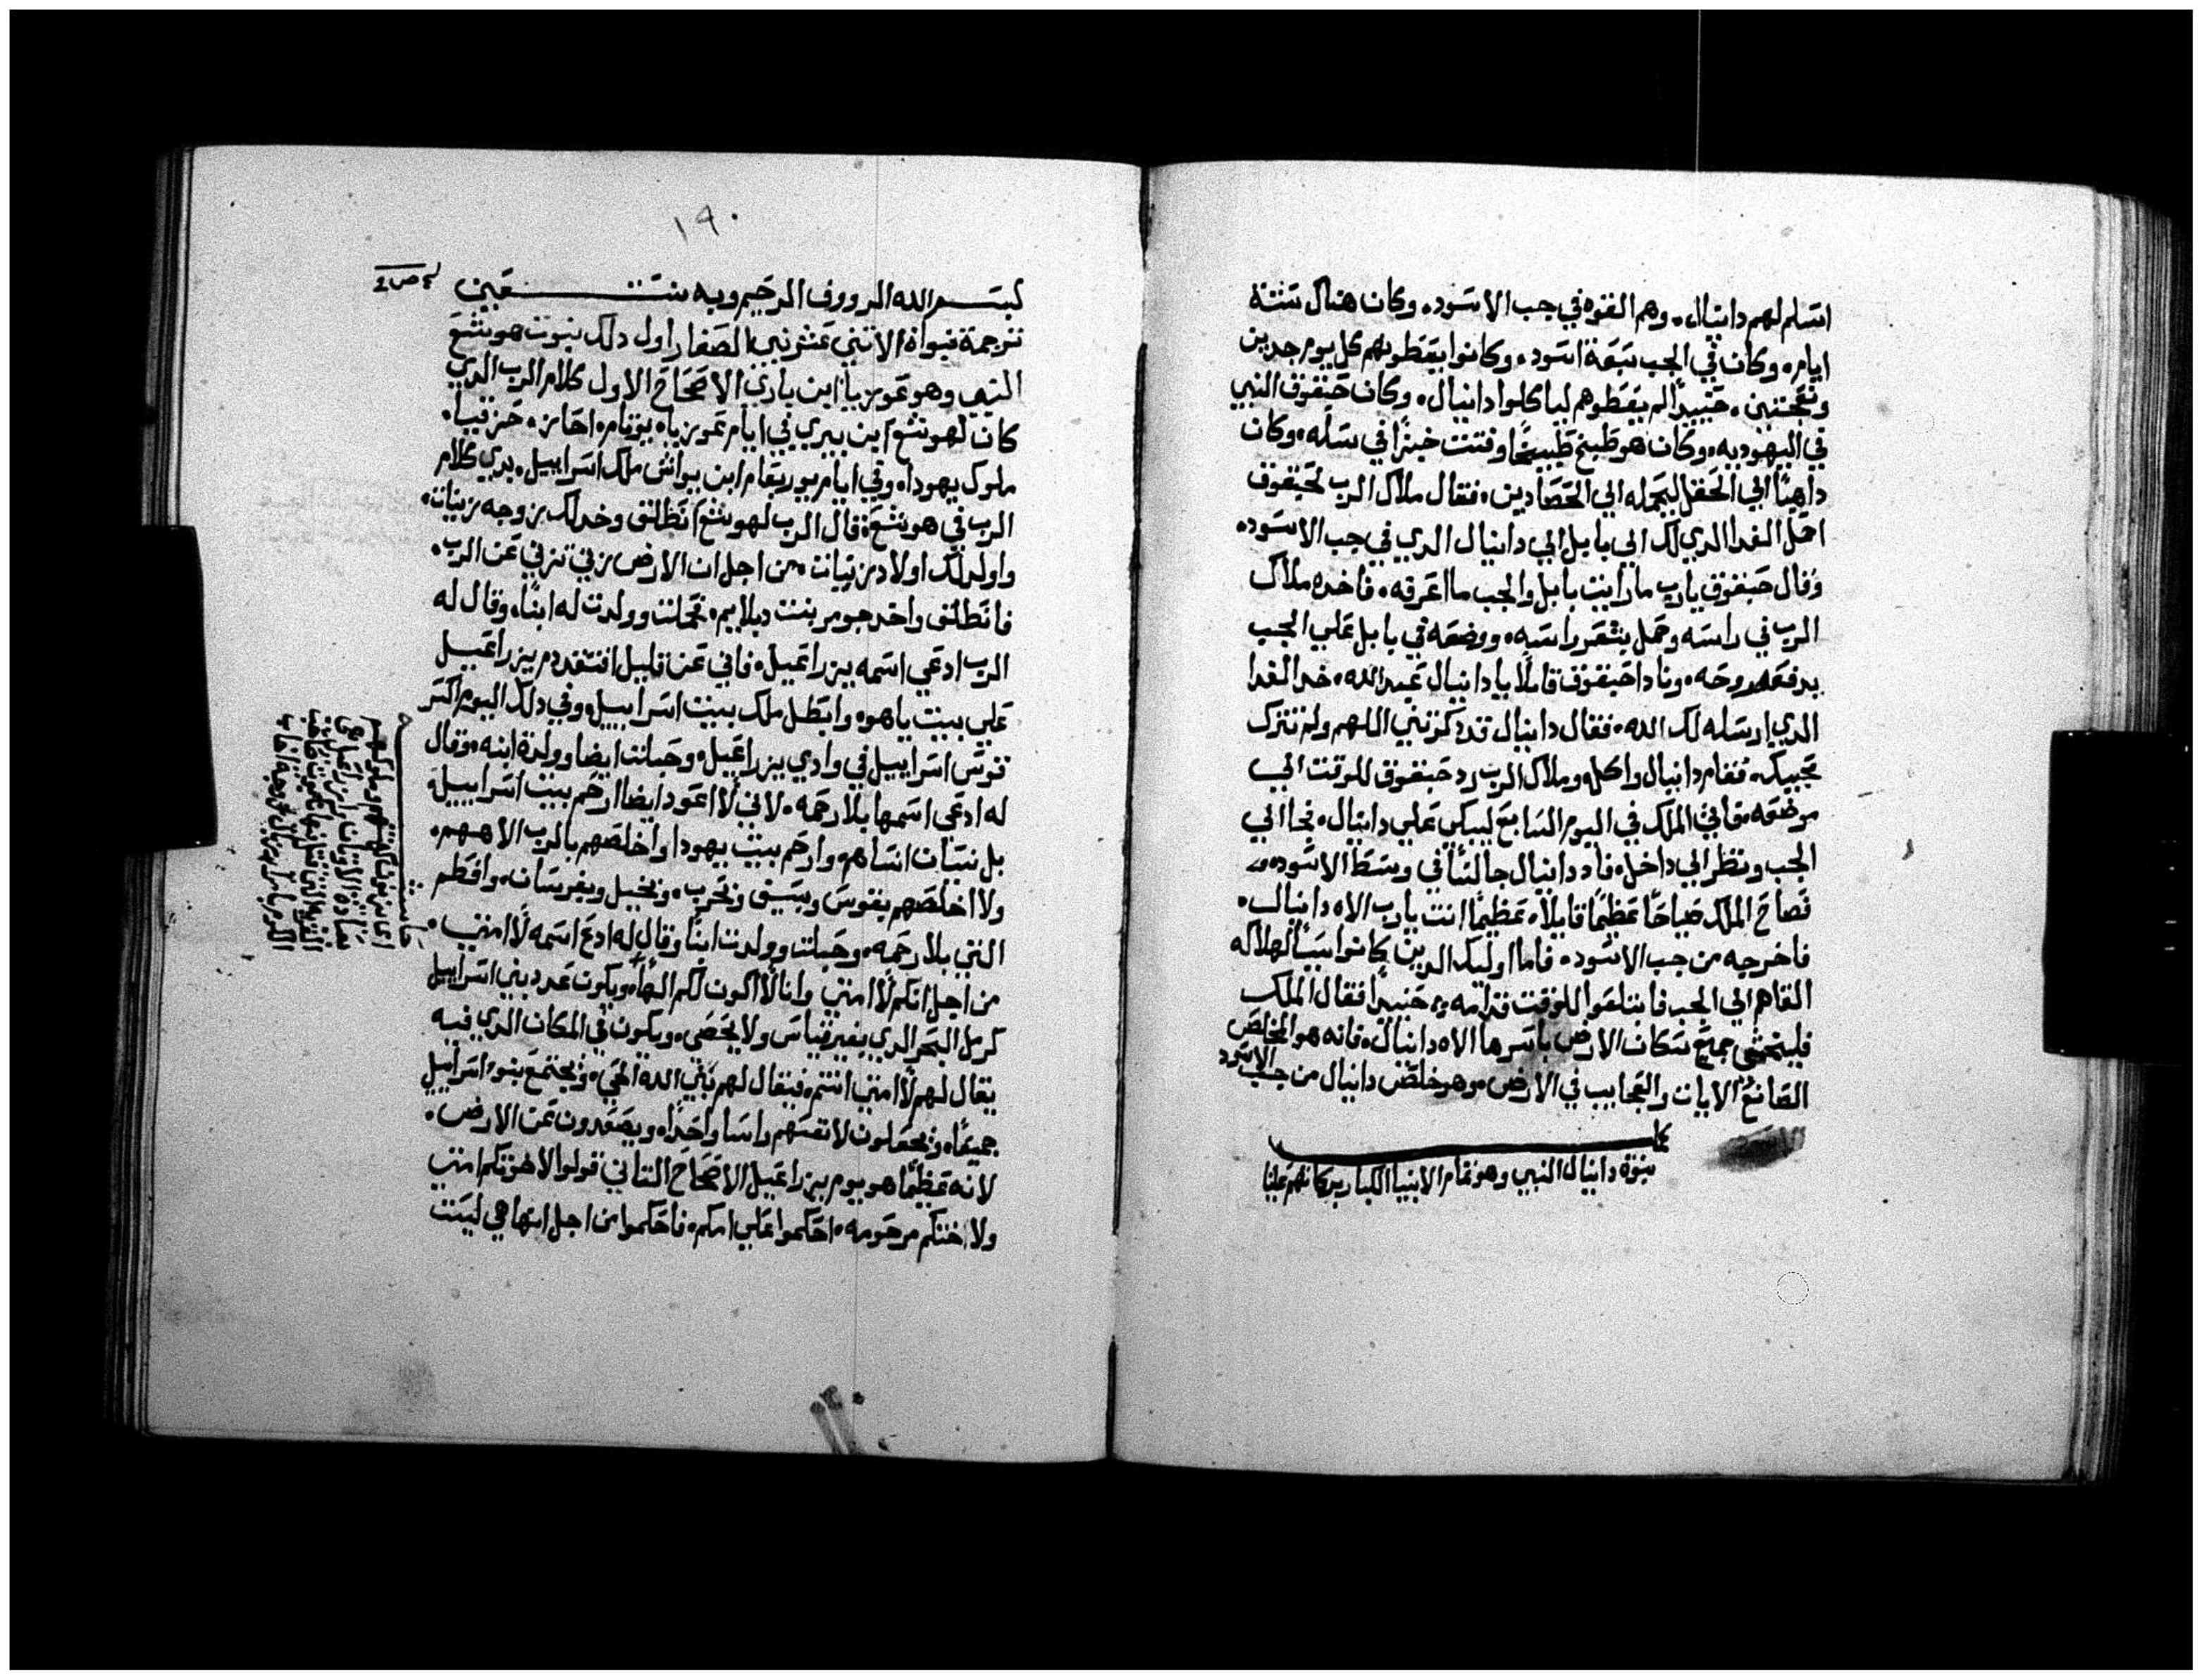 اسلم لهم دانيال. وهم القوه في جب الاسود. وكان هناك ستة
ايام. وكان في الجب سبعة اسود. وكانوا يعطوهم كل يوم جدين
ونعجتين. حنيدا لم يعطوهم لياكلوا دانيال. وكان حبقوق النبي
في اليهوديه. وكان هو طبخ طبيخا وفتت خبزا في سله. وكان
داهبا الي الحقل ليحمله الي الحصادين. فقال ملاك الرب لحبقوق
احمل الغدا الدي لك الي بابل الي دانيال الدي في جب الاسود.
وقال حبقوق يارب ما رايت بابل والجب ما اعرفه. فاخده ملاك
الرب في راسه وحمل بشعر راسه. ووضعه في بابل علي الجب
بدفعة روحه. ونادا حبقوق قايلا يا دانيال عبد الله. خد الغدا
الدي ارسله لك الله. فقال دانيال قد دكرتني اللهم ولم تترك
محبيك. فقام دانيال واكل. وملاك الرب رد حبقوق للوقت الي
موضعه. فاتي الملك في اليوم السابع ليبكي علي دانيال. فجا الي
الجب ونظر الي داخل. فاد دانيال جالسا في وسط الاسود.
فصاح الملك صياحا عظيما قايلا. عظيما انت يارب الاه دانيال.
فاخرجه من جب الاسود. فاما اوليك الدين كانوا سببا لهلاكه
القاهم الي الجب فابتلعوا للوقت قدامه. حنيدا فقال الملك
فليخشي جميع سكان الارض باسرها الاه دانيال. فانه هو المخلص
الصانع الايات والعجايب في الارض. وهو خلص دانيال من جب الاسود
نبوة دانيال النبي وهو تمام الانبيا الكبار بركاتهم علينا
١٩٠
بسم الله الرووف الرحيم وبه نستعين
ترجمة نبواة الاتني عشر نبي الصغار اول دلك نبوت هوشع
النبي وهو عوزيا ابن باري الاصحاح الاول كلام الرب الدي
كان لهوشع ابن بيري في ايام عوزياه يوتام. احاز. حزقيا.
ملوك يهودا. وفي ايام يوربعام ابن يواش ملك اسراييل. بدي كلام
الرب في هوشع. قال الرب لهوشع انطلق وخد لك زوجه زنيات.
واولد لك اولاد زنيات من اجل ان الارض زني تزني عن الرب.
فانطلق واخد جومر بنت دبلاييم. فحملت وولدت له ابنا. وقال له
الرب ادعي اسمه يزراعيل. فاني عن قليل افتقد دم يزراعيل
علي بيت ياهو. وابطل ملك بيت اسراييل. وفي دلك اليوم اكسر
قوس اسراييل في وادي يزراعيل. وحبلت ايضا وولدة ابنه. وقال
له ادعي اسمها بلا رحمه. لاني لا اعود ايضا ارحم بيت اسراييل.
بل نسيان انساهم. وارحم بيت يهودا واخلصهم بالرب الاههم.
ولا اخلصهم بقوس وبسيف وبحرب. وبخيل وبفرسان. وافطم
التي بلا رحمه. وحبلت وولدت ابنا وقال له ادع اسمه لا امتي.
من اجل انكم لا امتي وانا لا اكون لكم الها. ويكون عدد بني اسراييل
كرمل البحر الدي بغير قياس ولا يحصي. ويكون في المكان الدي فيه
يقال لهم لا امتي انتم. فيقال لهم بني الله الحي. ويجتمع بنو اسراييل
جميعا. ويجعلون لانفسهم راسا واحدا. ويصعدون عن الارض.
لانه عظيما هو يوم يزراعيل الاصحاح التاني قولوا لاخوتكم امتي
ولاختكم مرحومه. احكموا علي امكم. فاحكموا من اجل انها هي ليست